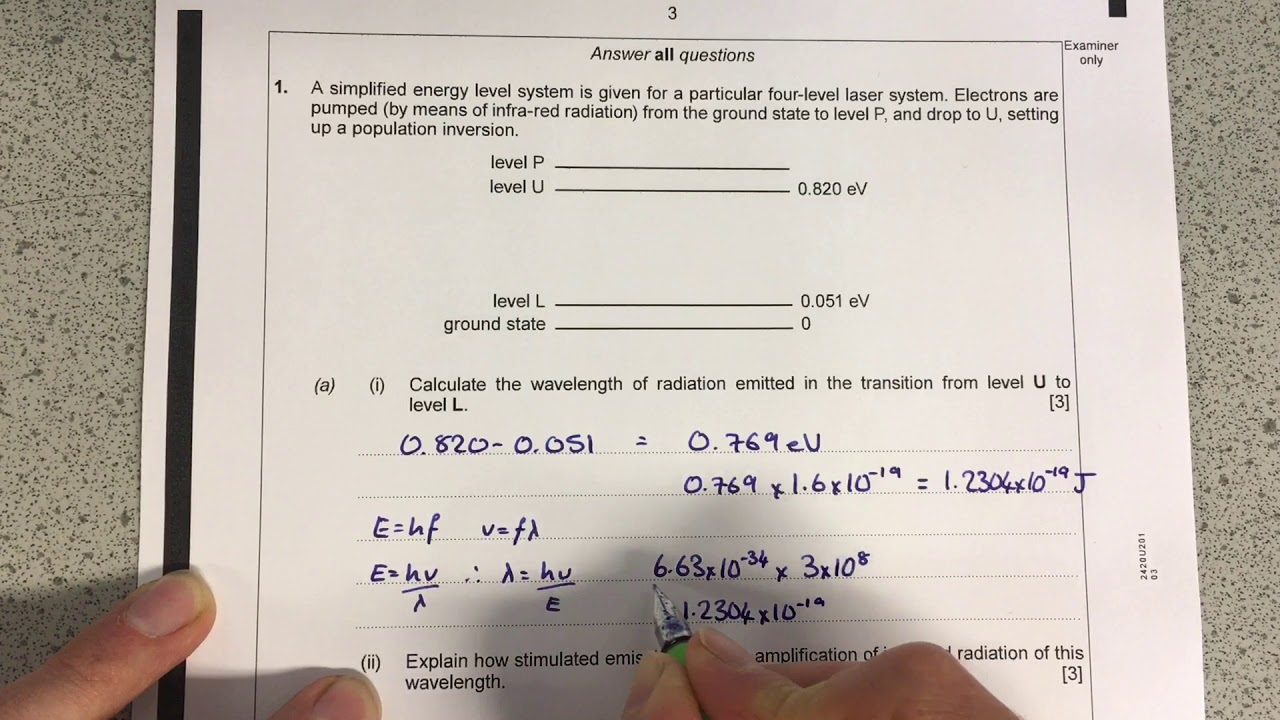 3
Answer all questions
Examiner only
1. A simplified energy level system is given for a particular four-level laser system. Electrons are
pumped (by means of infra-red radiation) from the ground state to level P, and drop to U, setting
up a population inversion.
level P
level U 0.820 eV
level L 0.051 eV
ground state 0
(a) (i) Calculate the wavelength of radiation emitted in the transition from level U to
level L. [3]
0.820 - 0.051 = 0.769 eV
0.769 × 1.6×10⁻¹⁹ = 1.2304×10⁻¹⁹ J
E=hf v=fλ
E=hv/λ ∴ λ=hv/E 6.63×10⁻³⁴ × 3×10⁸
1.2304×10⁻¹⁹
(ii) Explain how stimulated amplification of radiation of this
wavelength. [3]
2420U201
03